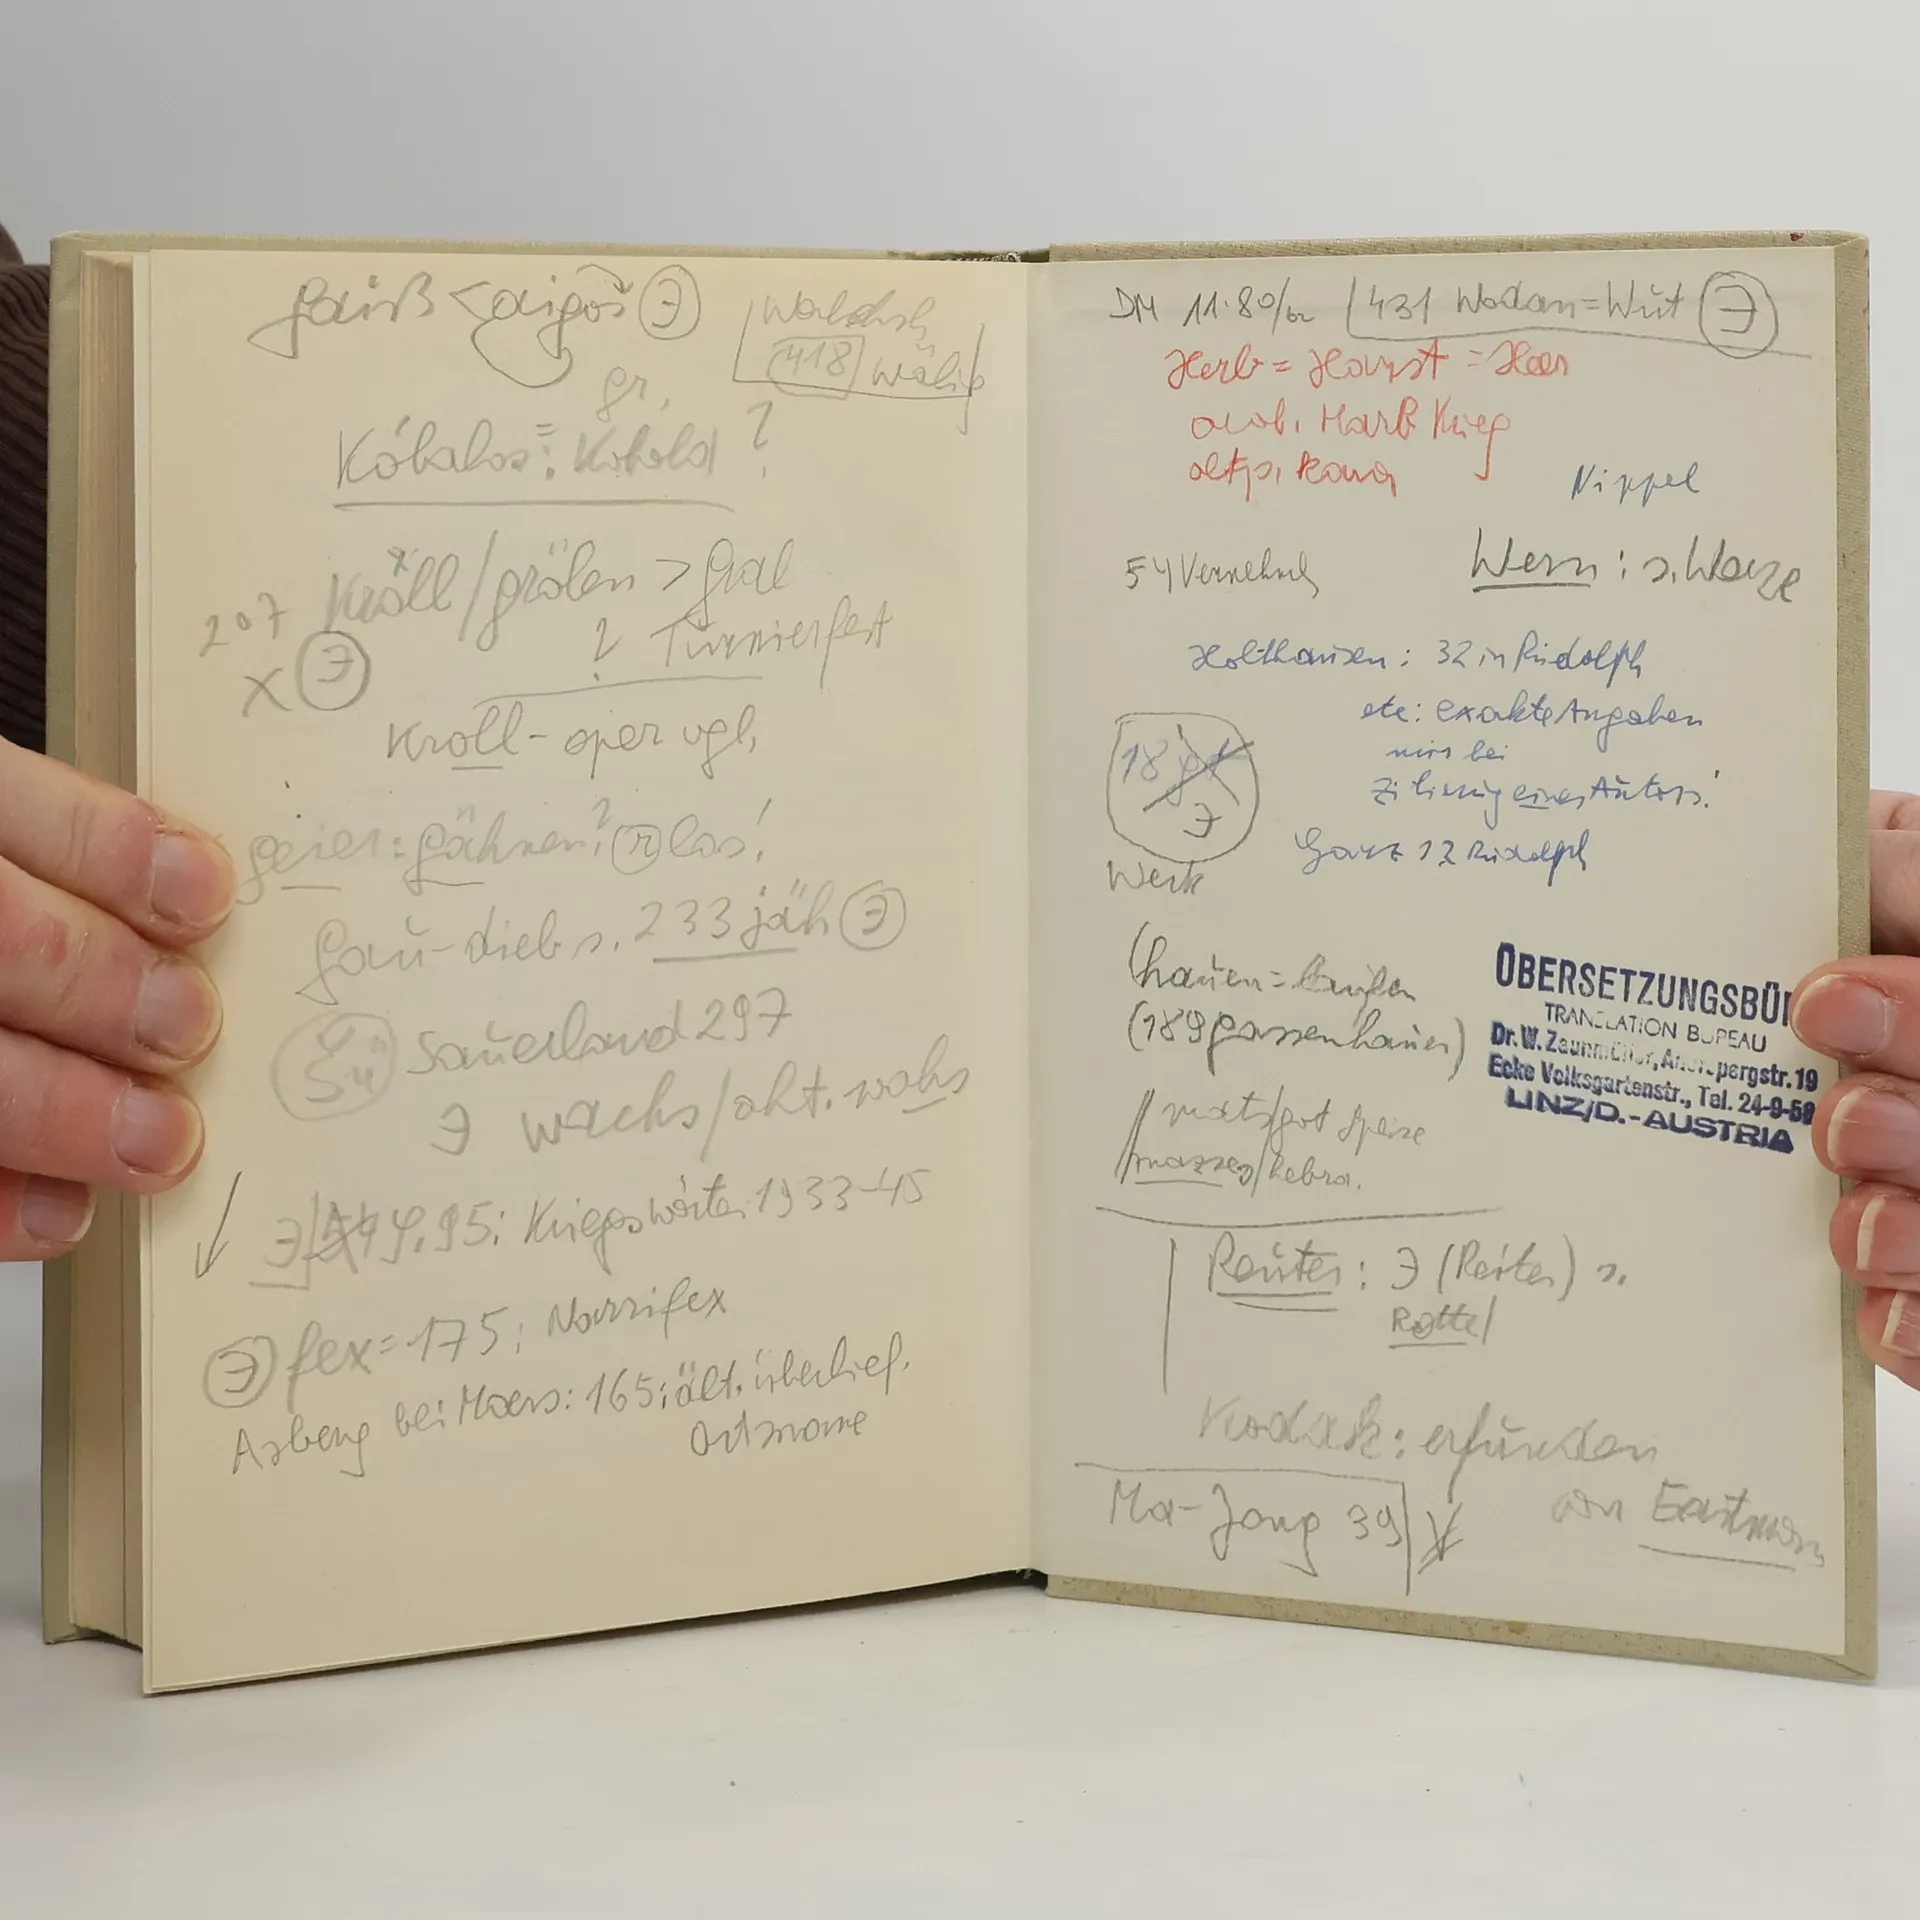 Gaiß < aigos Ǝ
418
gr.
Kóbalos = : Kobold ?
207 Kröll / grölen > Gral
X Ǝ ? Turnierfest
Kroll-oper vgl.
Geier : gähnen? r los!
Gau-dieb s. 233 jäh Ǝ
Sauerland 297
Ǝ wachs / aht. wahs
Ǝ 4,95: Kriegswörter 1933-45
Ǝ fex = 175: Narrifex
Asberg bei Moers: 165: ält. überlief.
Ortsname
DM 11.80 431 Wodan = Wut Ǝ
Herb = Harst = Heer
arab. Harb Krieg
altp. kara
Nippel
54 Vernehml
Wern : s. Warze
Holthausen : 32 in Rudolph
etc: exakte Angaben
nur bei
Zitierung eines Autors!
18
Ǝ
Ganz 12 Rudolph
Werk
(hauen = laufen
(189 gassenhauer)
matz/got Speise
mazzes/hebrä.
ÜBERSETZUNGSBÜ
TRANSLATION BUREAU
Dr. W. Zaunmüller, pergstr. 19
Ecke Volksgartenstr., Tel. 24-9-58
LINZ/D.-AUSTRIA
Reuter : Ǝ (Reiter) s.
Rotte
Kodak : erfunden
von Eastman
Ma-Jong 39